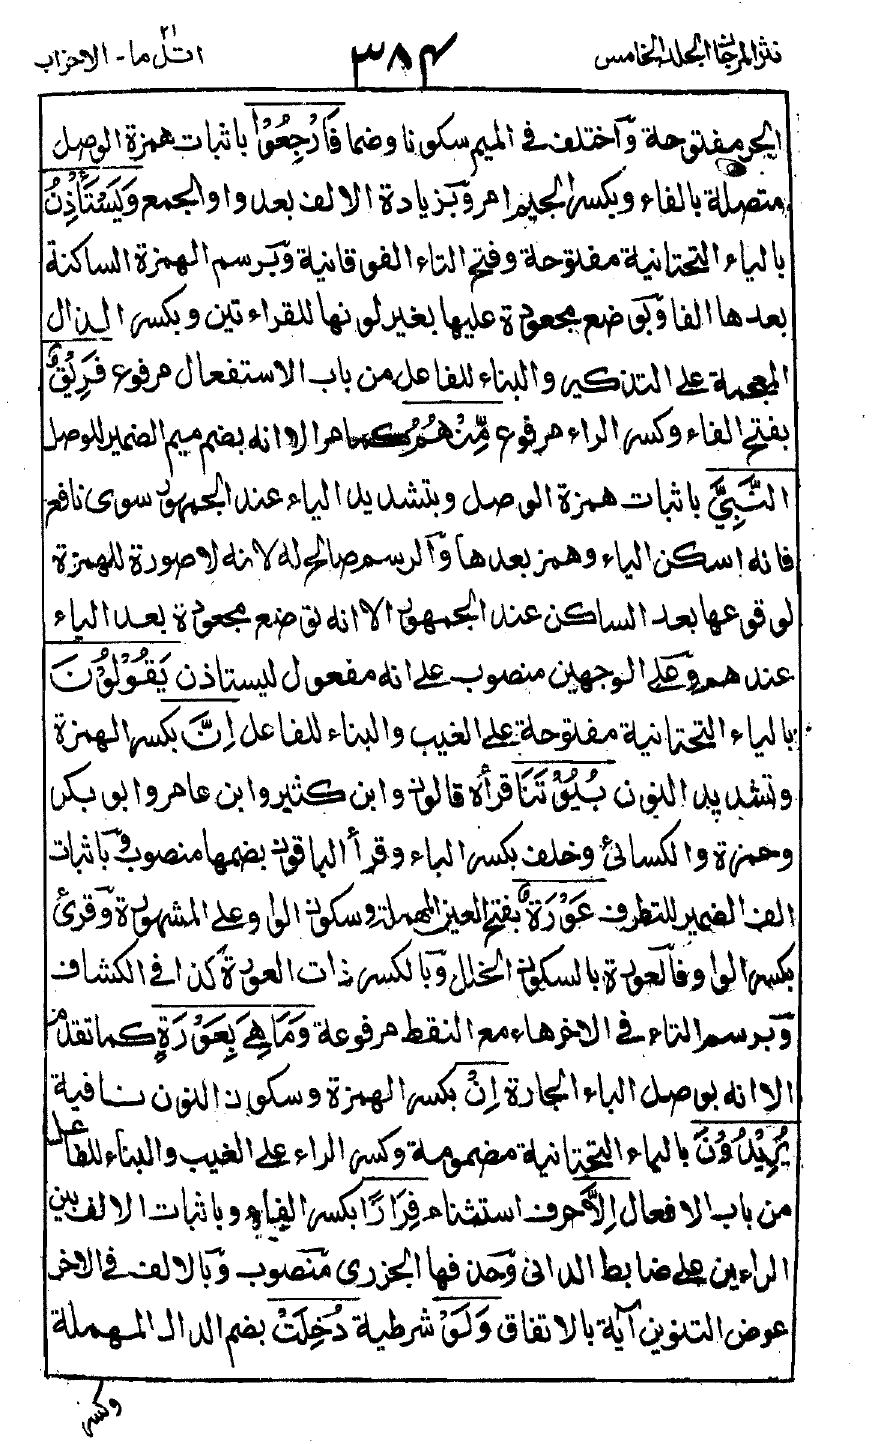 نثر المرجان المجلد الخامس
٣٨٤
اتل ما ٢١ - الاحزاب
الجر مفتوحة وَاختلف في الميم سكونا وضما فَارْجِعُوْا باثبات همزة الوصل
متصلة بالفاء وبكسر الجيم امر وَبزيادة الالف بعد واو الجمع وَيَسْتَأْذِنُ
بالياء التحتانية مفتوحة وفتح التاء الفوقانية وَبرسم الهمزة الساكنة
بعدها الفا وَبوضع مجعودة عليها بغير لونها للقراءتين وبكسر الذال
المعجمة على التذكير والبناء للفاعل من باب الاستفعال مرفوع فَرِيْقٌ
بفتح الفاء وكسر الراء مرفوع مِّنْهُمُ كما مر الا انه بضم ميم الضمير للوصل
النَّبِيَّ باثبات همزة الوصل وبتشديد الياء عند الجمهور سوى نافع
فانه اسكن الياء وهمز بعدها وَالرسم صالح له لانه لا صورة للهمزة
لوقوعها بعد الساكن عند الجمهور الا انه توضع مجعودة بعد الياء
عندهم وَعلى الوجهين منصوب على انه مفعول ليستاذن يَقُوْلُوْنَ
بالياء التحتانية مفتوحة على الغيب والبناء للفاعل اِنَّ بكسر الهمزة
وتشديد النون بُيُوْتَنَا قرأه قالون وابن كثير وابن عامر وابو بكر
وحمزة والكسائي وخلف بكسر الباء وقرأ الباقون بضمها منصوب وَباثبات
الف الضمير للتطرف عَوْرَةٌ بفتح العين المهملة وسكون الواو على المشهورة وَقرئ
بكسر الواو فالعورة بالسكون الخلل وَبالكسر ذات العورة كذا في الكشاف
وَبرسم التاء في الاخر هاء مع النقط مرفوعة وَمَا هِيَ بِعَوْرَةٍ كما تقدم
الا انه بوصل الباء الجارة اِنْ بكسر الهمزة وسكون النون نافية
يُرِيْدُوْنَ بالياء التحتانية مضمومة وكسر الراء على الغيب والبناء للفاعل
من باب الافعال اِلَّا حرف استثناء فِرَارًا بكسر الفاء وباثبات الالف بين
الراءين على ضابط الداني وَحذفها الجزري منصوب وَبالالف في الاخر
عوض التنوين آية بالاتفاق وَلَوْ شرطية دُخِلَتْ بضم الدال المهملة
وكسر